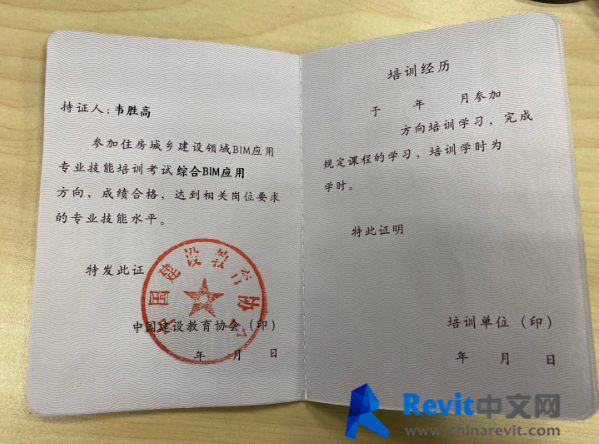 持证人：韦胜高
参加住房城乡建设领域BIM应用
专业技能培训考试综合BIM应用
方向，成绩合格，达到相关岗位要求
的专业技能水平。
特发此证
中国建设教育协会
中国建设教育协会（印）
年 月 日
培训经历
于 年 月参加
方向培训学习，完成
规定课程的学习，培训学时为
学时。
特此证明
培训单位（印）
年 月 日
Revit中文网
www.chinarevit.com